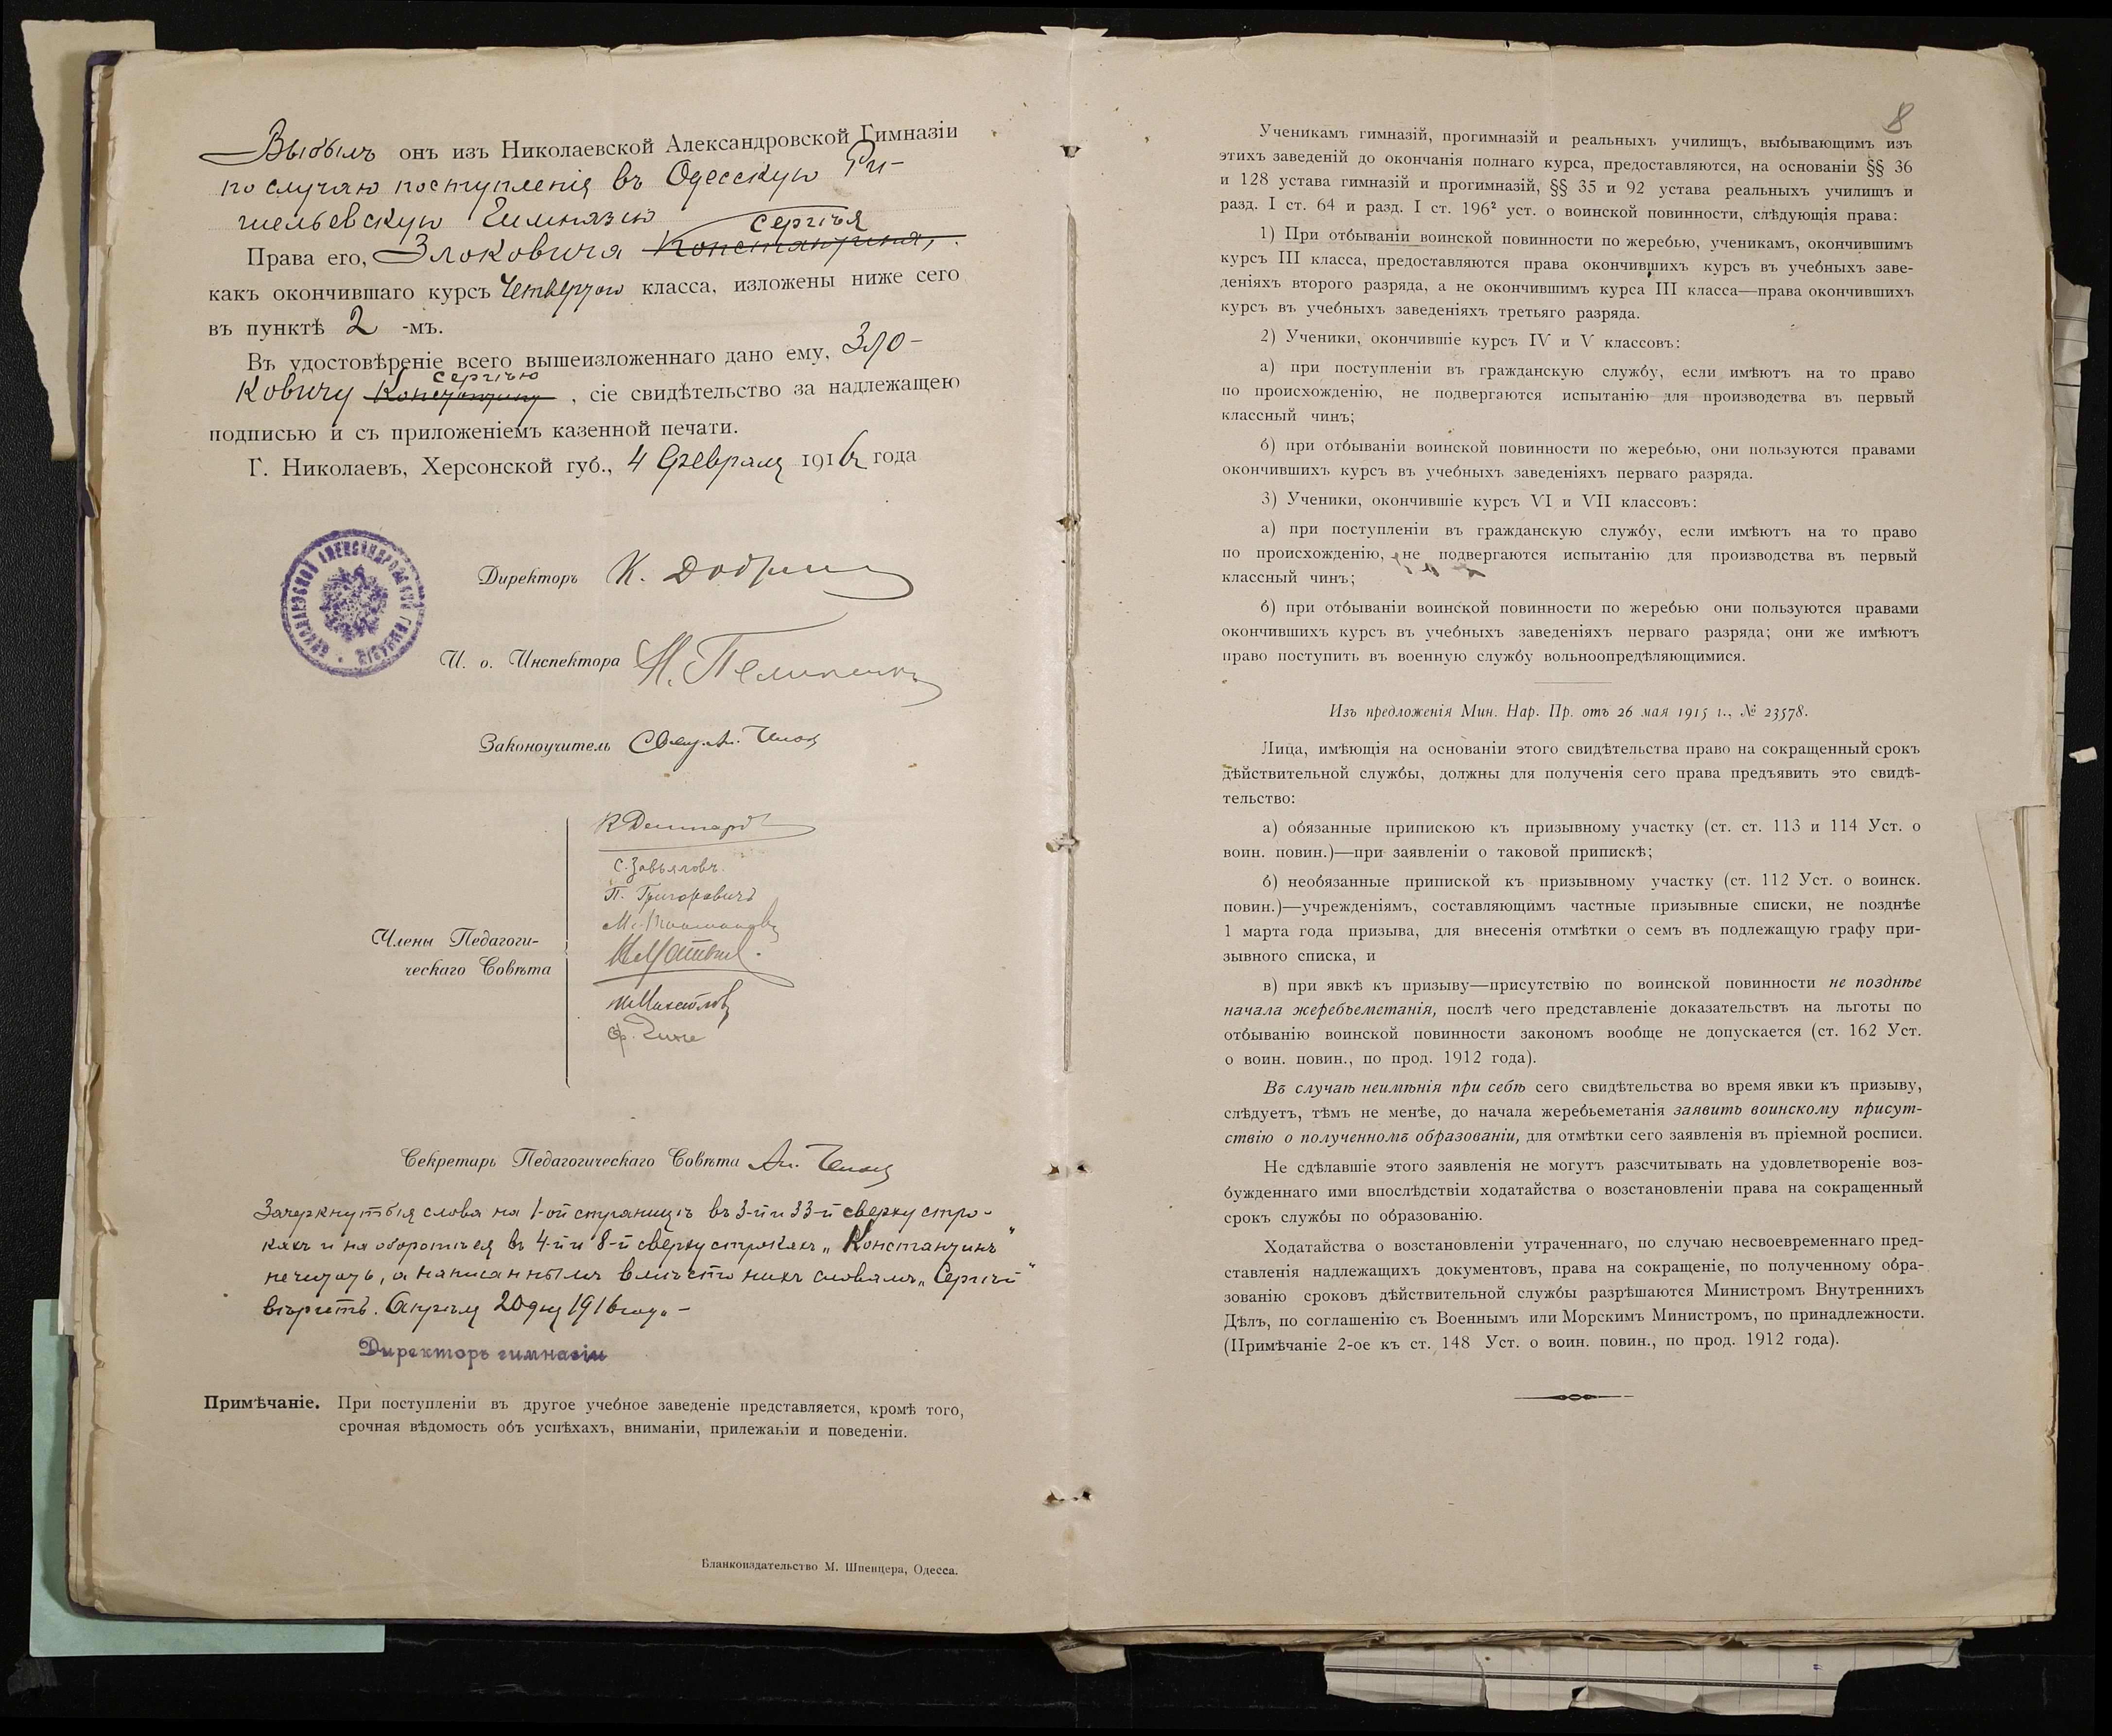 Выбылъ онъ изъ Николаевской Александровской Гимназіи
по случаю поступленія въ Одесскую Ри-
шельевскую Гимназію
Сергѣя
Права его, Злоковича Константина,
какъ окончившаго курсъ Четвертаго класса, изложены ниже сего
въ пунктѣ 2 -мъ.
Въ удостовѣреніе всего вышеизложеннаго дано ему, Зло-
Сергѣю
ковичу Константину, сіе свидѣтельство за надлежащею
подписью и съ приложеніемъ казенной печати.
Г. Николаевъ, Херсонской губ., 4 Февраля 1916 года
НИКОЛАЕВСКОЙ АЛЕКСАНДРОВСКОЙ ГИМНАЗІИ
Директоръ К.
И. о. Инспектора
Законоучитель Свящ. Ал.
С. Завьяловъ
П. Григоровичъ
Члены Педагоги-
ческаго Совѣта
Михайловъ
Секретарь Педагогическаго Совѣта Ал.
Зачеркнутыя слова на 1-ой страницѣ въ 3-й и 33-й сверху стро-
кахъ и на оборотѣ ея въ 4-й и 8-й сверху строкахъ „Константинъ"
не читать, а написаннымъ вмѣсто нихъ словамъ „Сергѣй"
вѣрить. Апрѣля 20 дня 1916 года –
Директоръ гимназіи
Примѣчаніе. При поступленіи въ другое учебное заведеніе представляется, кромѣ того,
срочная вѣдомость объ успѣхахъ, вниманіи, прилежаніи и поведеніи.
Бланкоиздательство М. Шпенцера, Одесса.
8
Ученикамъ гимназій, прогимназій и реальныхъ училищъ, выбывающимъ изъ
этихъ заведеній до окончанія полнаго курса, предоставляются, на основаніи §§ 36
и 128 устава гимназій и прогимназій, §§ 35 и 92 устава реальныхъ училищъ и
разд. I ст. 64 и разд. I ст. 196² уст. о воинской повинности, слѣдующія права:
1) При отбываніи воинской повинности по жеребью, ученикамъ, окончившимъ
курсъ III класса, предоставляются права окончившихъ курсъ въ учебныхъ заве-
деніяхъ второго разряда, а не окончившимъ курса III класса—права окончившихъ
курсъ въ учебныхъ заведеніяхъ третьяго разряда.
2) Ученики, окончившіе курсъ IV и V классовъ:
а) при поступленіи въ гражданскую службу, если имѣютъ на то право
по происхожденію, не подвергаются испытанію для производства въ первый
классный чинъ;
б) при отбываніи воинской повинности по жеребью, они пользуются правами
окончившихъ курсъ въ учебныхъ заведеніяхъ перваго разряда.
3) Ученики, окончившіе курсъ VI и VII классовъ:
а) при поступленіи въ гражданскую службу, если имѣютъ на то право
по происхожденію, не подвергаются испытанію для производства въ первый
классный чинъ;
б) при отбываніи воинской повинности по жеребью они пользуются правами
окончившихъ курсъ въ учебныхъ заведеніяхъ перваго разряда; они же имѣютъ
право поступить въ военную службу вольноопредѣляющимися.
Изъ предложенія Мин. Нар. Пр. отъ 26 мая 1915 г., № 23578.
Лица, имѣющія на основаніи этого свидѣтельства право на сокращенный срокъ
дѣйствительной службы, должны для полученія сего права предъявить это свидѣ-
тельство:
а) обязанные припискою къ призывному участку (ст. ст. 113 и 114 Уст. о
воин. повин.)—при заявленіи о таковой припискѣ;
б) необязанные припиской къ призывному участку (ст. 112 Уст. о воинск.
повин.)—учрежденіямъ, составляющимъ частные призывные списки, не позднѣе
1 марта года призыва, для внесенія отмѣтки о семъ въ подлежащую графу при-
зывного списка, и
в) при явкѣ къ призыву—присутствію по воинской повинности не позднѣе
начала жеребьеметанія, послѣ чего представленіе доказательствъ на льготы по
отбыванію воинской повинности закономъ вообще не допускается (ст. 162 Уст.
о воин. повин., по прод. 1912 года).
Въ случаѣ неимѣнія при себѣ сего свидѣтельства во время явки къ призыву,
слѣдуетъ, тѣмъ не менѣе, до начала жеребьеметанія заявить воинскому присут-
ствію о полученномъ образованіи, для отмѣтки сего заявленія въ пріемной росписи.
Не сдѣлавшіе этого заявленія не могутъ разсчитывать на удовлетвореніе воз-
бужденнаго ими впослѣдствіи ходатайства о возстановленіи права на сокращенный
срокъ службы по образованію.
Ходатайства о возстановленіи утраченнаго, по случаю несвоевременнаго пред-
ставленія надлежащихъ документовъ, права на сокращеніе, по полученному обра-
зованію сроковъ дѣйствительной службы разрѣшаются Министромъ Внутреннихъ
Дѣлъ, по соглашенію съ Военнымъ или Морскимъ Министромъ, по принадлежности.
(Примѣчаніе 2-ое къ ст. 148 Уст. о воин. повин., по прод. 1912 года).